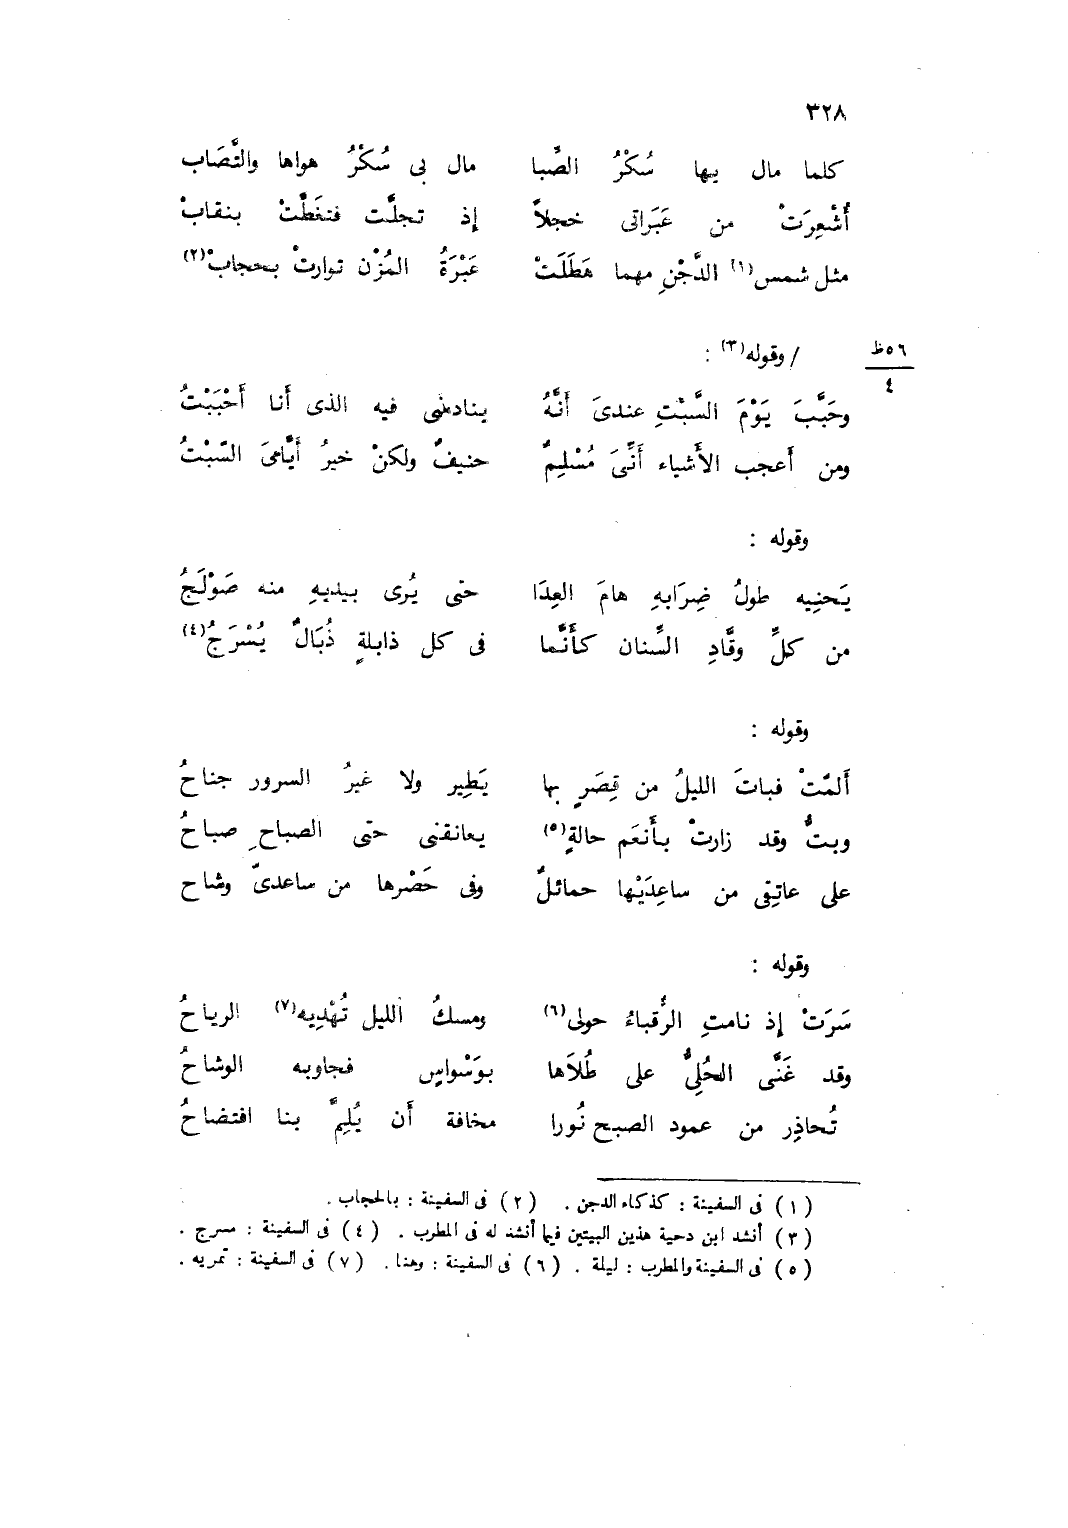 ٣٢٨
كلما مال بها سُكْرُ الصِّبا مال بى سُكْرُ هواها والتَّصَاب
أُشْعِرَتْ من عَبَراتى خجلاً إذ تجلَّت فتغَطَّتْ بنقابْ
مثل شمس(١) الدَّجْنِ مهما هَطَلَتْ عَبْرَةُ المُزْن توارتْ بحجابْ(٢)
٥٦ظ
٤
/ وقوله(٣) :
وحَبَّبَ يَوْمَ السَّبْتِ عندىَ أَنَّهُ ينادمنى فيه الذى أنا أَحْبَبْتُ
ومن أَعجب الأَشياء أَنِّىَ مُسْلِمٌ حنيفٌ ولكنْ خيرُ أَيَّامىَ السَّبْتُ
وقوله :
يَحنِيه طولُ ضِرَابهِ هامَ العِدَا حتى يُرى بيديهِ منه صَوْلَجُ
من كلِّ وقَّادِ السِّنان كأَنَّما فى كل ذابلةٍ ذُبَالٌ يُسْرَجُ(٤)
وقوله :
أَلمّتْ فباتَ الليلُ من قِصَرٍ بها يَطِير ولا غيرُ السرور جناحُ
وبتُّ وقد زارتْ بأَنعَم حالةٍ(٥) يعانقنى حتى الصباحِ صباحُ
على عاتِقى من ساعِدَيْها حمائلٌ وفى خَصْرها من ساعدىّ وشاح
وقوله :
سَرَتْ إذ نامتِ الرُّقباءُ حولى(٦) ومسكُ الليل تُهْدِيه(٧) الرياحُ
وقد غَنَّى الحُلِىُّ على طُلَاها بوَسْواسٍ فجاوبه الوشاحُ
تُحاذِر من عمود الصبح نُورا مخافة أَن يُلِمَّ بنا افتضاحُ
(١) فى السفينة : كذكاء الدجن . (٢) فى السفينة : بالحجاب .
(٣) أنشد ابن دحية هذين البيتين فيما أنشد له فى المطرب . (٤) فى السفينة : مسرج .
(٥) فى السفينة والمطرب : ليلة . (٦) فى السفينة : وهنا . (٧) فى السفينة : تمريه .